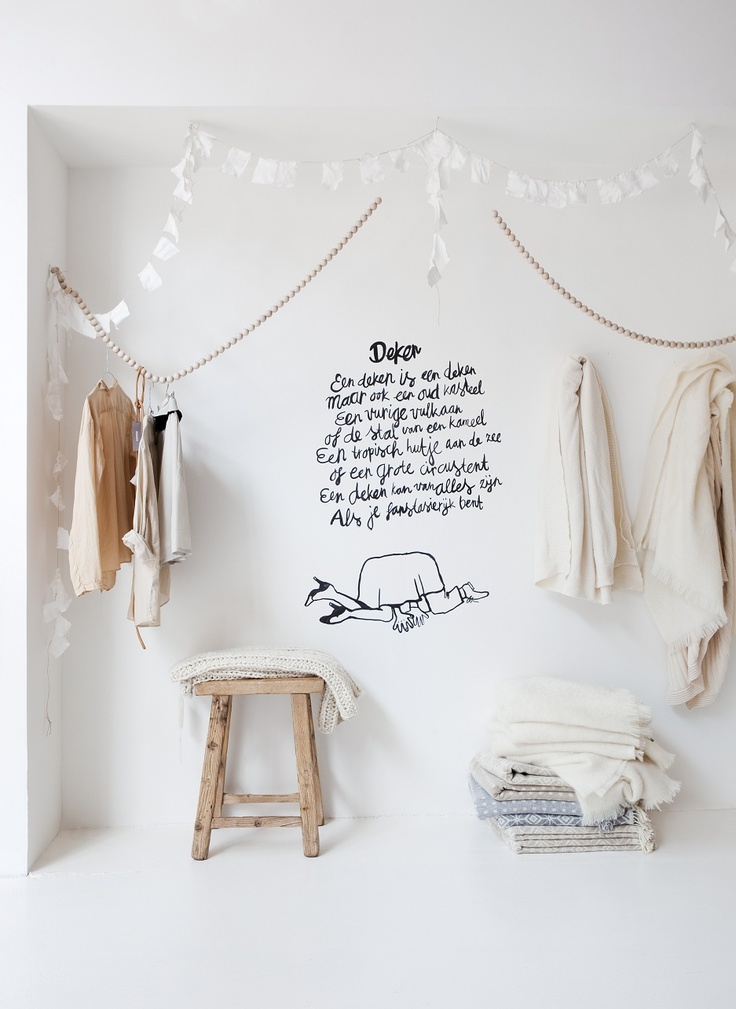 Deken
Een deken is een deken
maar ook een oud kasteel
Een vurige vulkaan
of de stal van een kameel
Een tropisch hutje aan de zee
of een grote circustent
Een deken kan van alles zijn
Als je fantasierijk bent